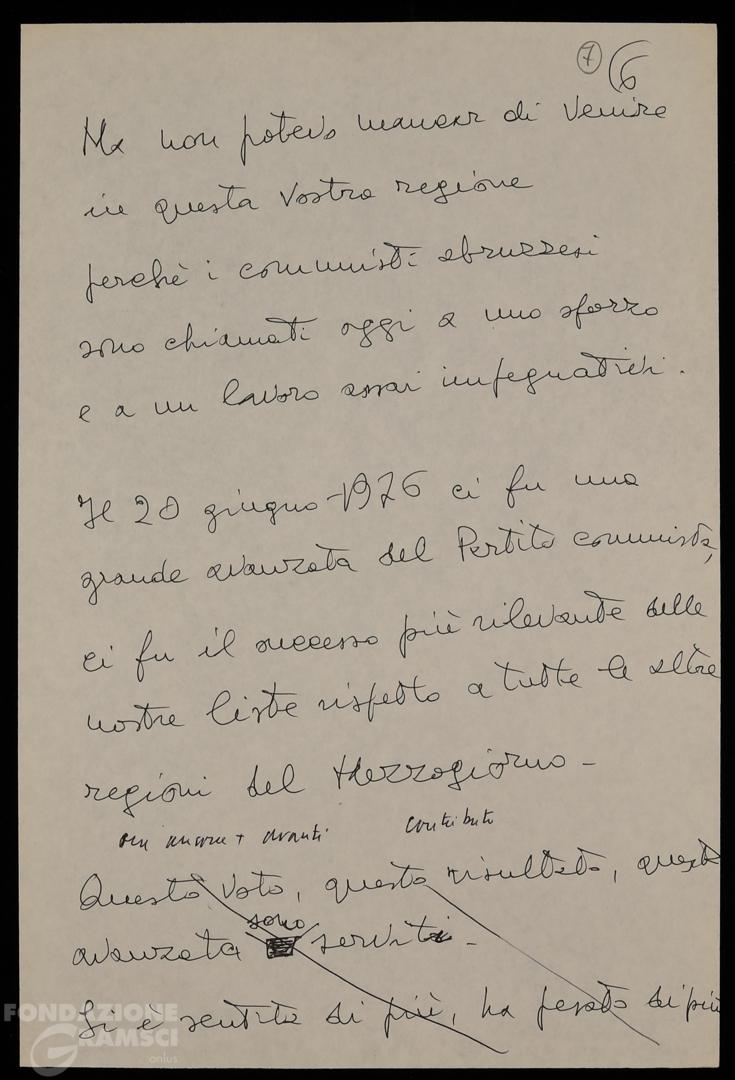 7 6
Ma non potevo mancar di venire
in questa vostra regione
perchè i comunisti abruzzesi
sono chiamati oggi a uno sforzo
e a un lavoro assai impegnativi.
Il 20 giugno 1976 ci fu una
grande avanzata del Partito comunista,
ci fu il successo più rilevante delle
nostre liste rispetto a tutte le altre
regioni del Mezzogiorno -
ancora + avanti contributo
Questo voto, questo risultato, questa
avanzata sono serviti -
Si è sentito di più, ha pesato di più
FONDAZIONE
GRAMSCI
onlus